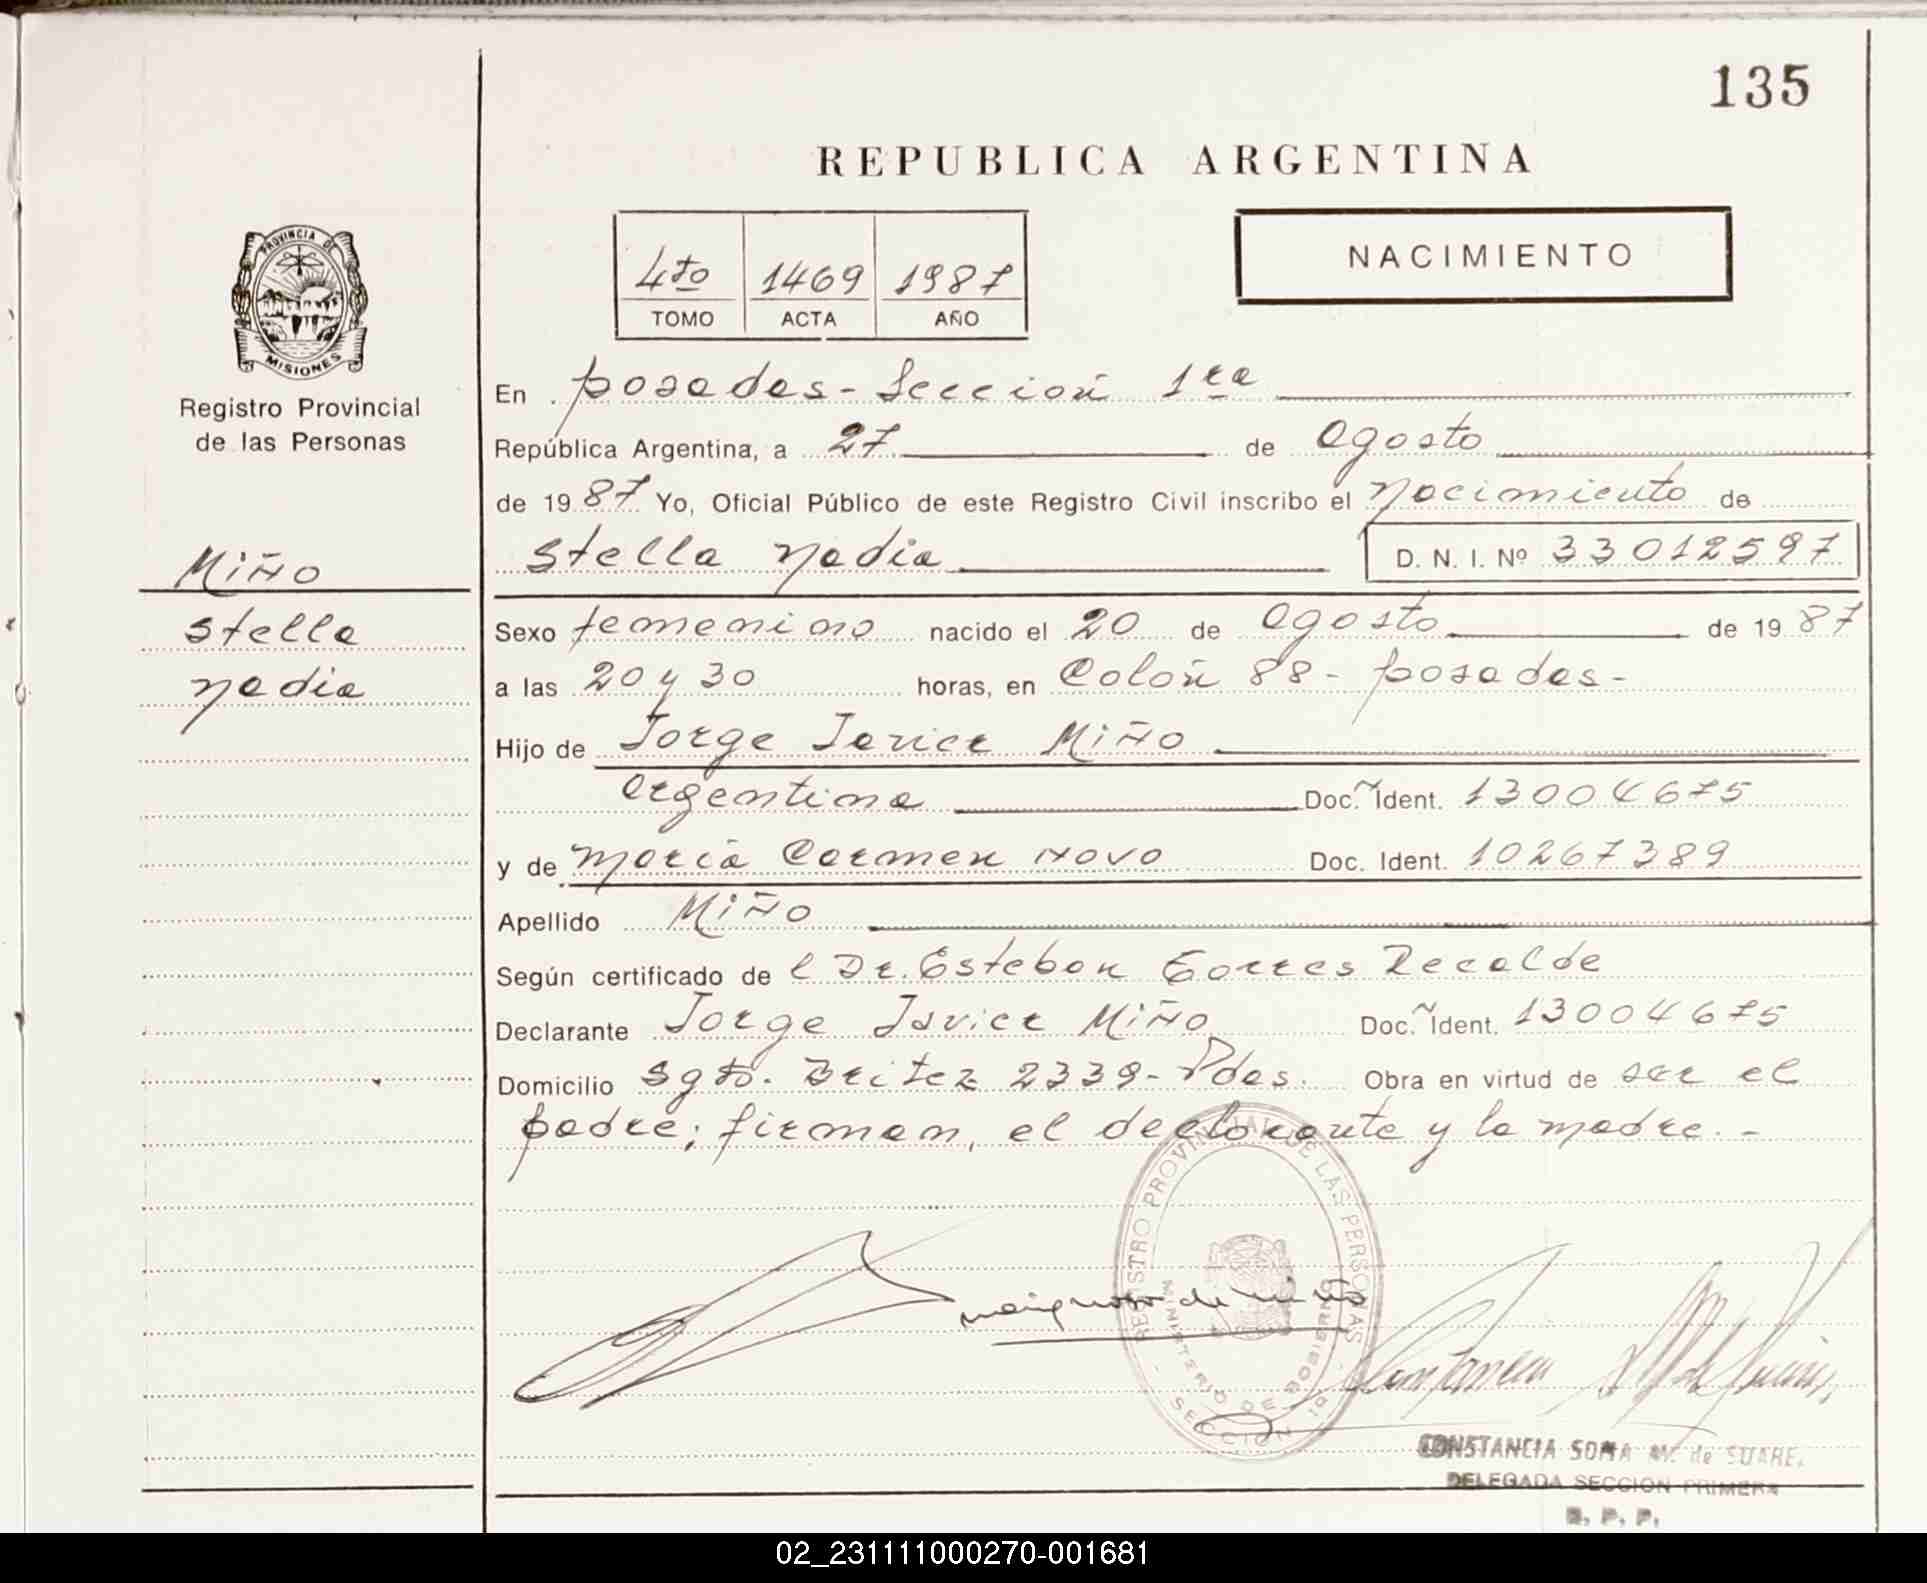 135
REPUBLICA ARGENTINA
PROVINCIA DE
MISIONES
Registro Provincial
de las Personas
4to 1469 1987
TOMO ACTA AÑO
NACIMIENTO
Miño
Stella
Nadia
En Posadas - Sección 1ra
República Argentina, a 27 de Agosto
de 1987 Yo, Oficial Público de este Registro Civil inscribo el Nacimiento de
Stella Nadia D. N. I. Nº 33012597
Sexo femenino nacido el 20 de Agosto de 1987
a las 20 y 30 horas, en Colón 88 - Posadas -
Hijo de Jorge Javier Miño
Argentina Doc. Ident. 13004675
y de María Carmen Novo Doc. Ident. 10267389
Apellido Miño
Según certificado de l Dr. Esteban Torres Recalde
Declarante Jorge Javier Miño Doc. Ident. 13004675
Domicilio Sgto. Britez 2339 - Pdas. Obra en virtud de ser el
padre; firman, el declarante y la madre. -
REGISTRO PROVINCIAL DE LAS PERSONAS
MINISTERIO DE GOBIERNO
SECCION 1ª
CONSTANCIA de SUARE.
DELEGADA SECCION PRIMERA
R. P. P.
02_231111000270-001681